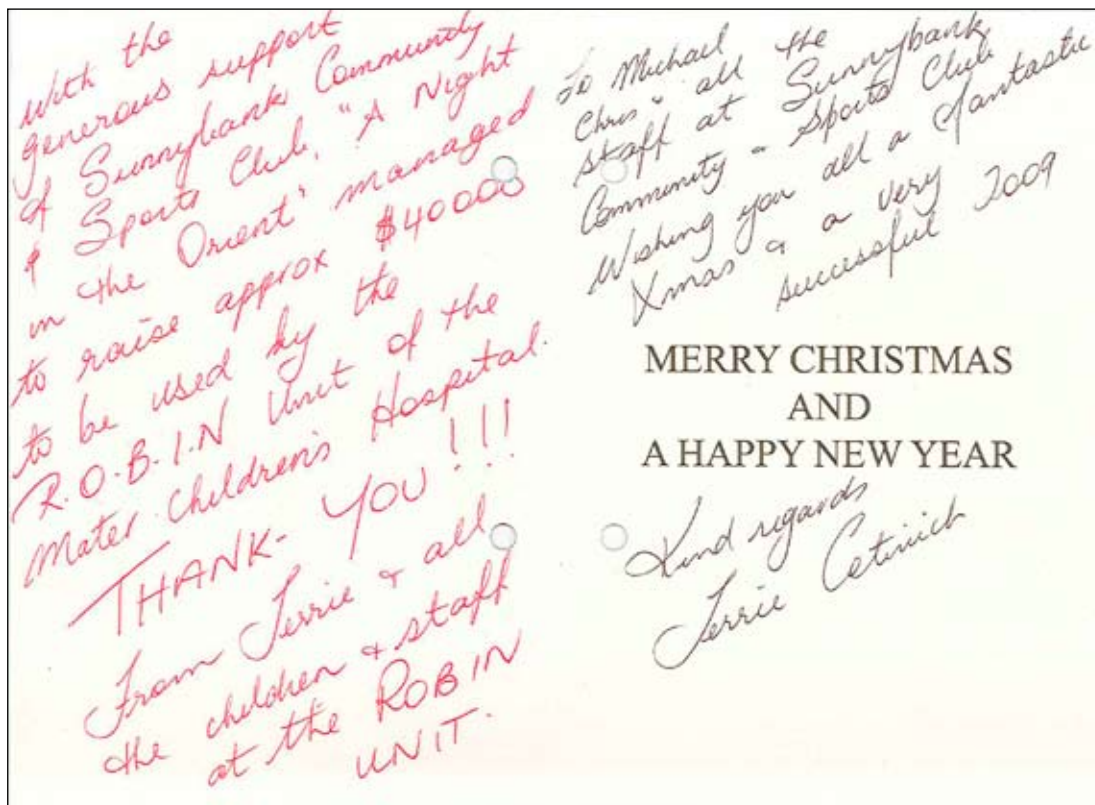 With the
generous support
of Sunnybank Community
& Sports Club, "A Night
in the Orient" managed
to raise approx $40000
to be used by the
R.O.B.I.N Unit of the
Mater Children's Hospital.
THANK-YOU!!!
From Terrie & all
the children & staff
at the ROBIN
UNIT.
To Michael
Chris & all the
staff at Sunnybank
Community & Sports Club
Wishing you all a fantastic
Xmas & a very
successful 2009
MERRY CHRISTMAS
AND
A HAPPY NEW YEAR
Kind regards
Terrie Cetinich